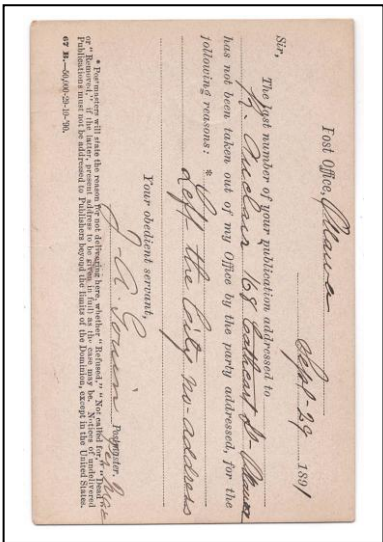 Post Office, Ottawa
Sept - 29 1891
Sir,
The last number of your publication addressed to
168 Cathcart St Ottawa
has not been taken out of my Office by the party addressed, for the
following reasons: *
Left the City no address
Your obedient servant,
J. A. Gouin Postmaster,
* Postmasters will state the reason for not delivering here, whether "Refused," "Not called for," "Dead"
or "Removed," (if the latter, present address to be given in full) as the case may be. Notices of undelivered
Publications must not be addressed to Publishers beyond the limits of the Dominion, except in the United States.
67 B.—50,000-29-10-'90.